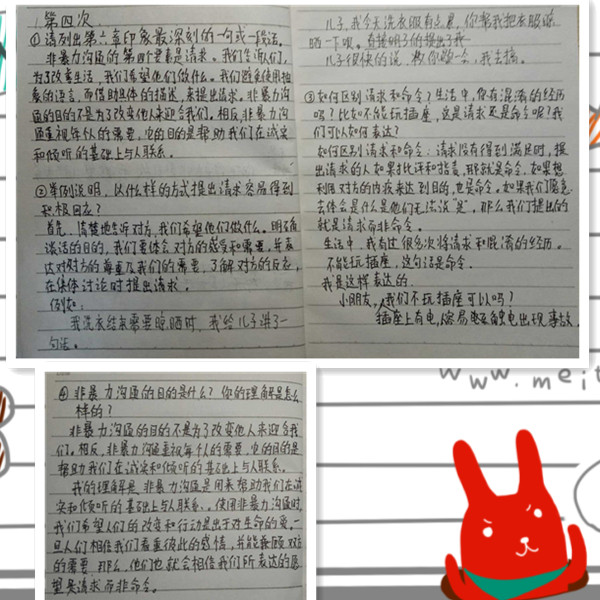 第四次
①请列出第六章印象最深刻的一句或一段话。
非暴力沟通的第四个要素是请求。我们告诉人们，
为了改善生活，我们希望他们做什么。我们避免使用抽
象的语言，而借助具体的描述，来提出请求。非暴力沟
通的目的不是为了改变他人来迎合我们。相反，非暴力沟
通重视每个人的需要，它的目的是帮助我们在诚实
和倾听的基础上与人联系。
②举例说明，以什么样的方式提出请求容易得到
积极回应？
首先，清楚地告诉对方，我们希望他们做什么。明确
谈话的目的，我们要体会对方的感受和需要，并表
达对对方的尊重及我们的需要，了解对方的反应，
在集体讨论时提出请求。
例如：
我洗衣结束需要晾晒时，我给儿子讲了一
句话。
儿子，我今天洗衣服有点累，你帮我把衣服晾
晒一下呗。直接明了的提出了我
儿子很快的说，教你歇一会，我去搞。
③如何区别请求和命令？生活中，你有混淆的经历
吗？比如不能玩插座，这是请求还是命令呢？我
们可以如何表达？
如何区别请求和命令：请求没有得到满足时，提
出请求的人如果批评和指责，那就是命令。如果想
利用对方的内疚来达到目的，也是命令。如果我们愿意
去体会是什么是他们无法说"是"。那么我们提出的
就是请求而非命令。
生活中，我有过很多次将请求和混淆的经历。
不能玩插座，这句话是命令。
我是这样表达的
小朋友，我们不玩插座可以吗？
插座上有电，容易触电出现事故。
④非暴力沟通的目的是什么？你的理解是怎么
样的？
非暴力沟通的目的不是为了改变他人来迎合我
们。相反，非暴力沟通重视每个人的需要，它的目的是
帮助我们在诚实和倾听的基础上与人联系。
我的理解是，非暴力沟通是用来帮助我们在诚
实和倾听的基础上与人联系。使用非暴力沟通时，
我们希望人们的改变和行动是出于对生命的爱，一
旦人们相信我们看重彼此的感情，并能兼顾对方
的需要。那么，他们也就会相信我们所表达的愿
望是请求而非命令。
www.meit